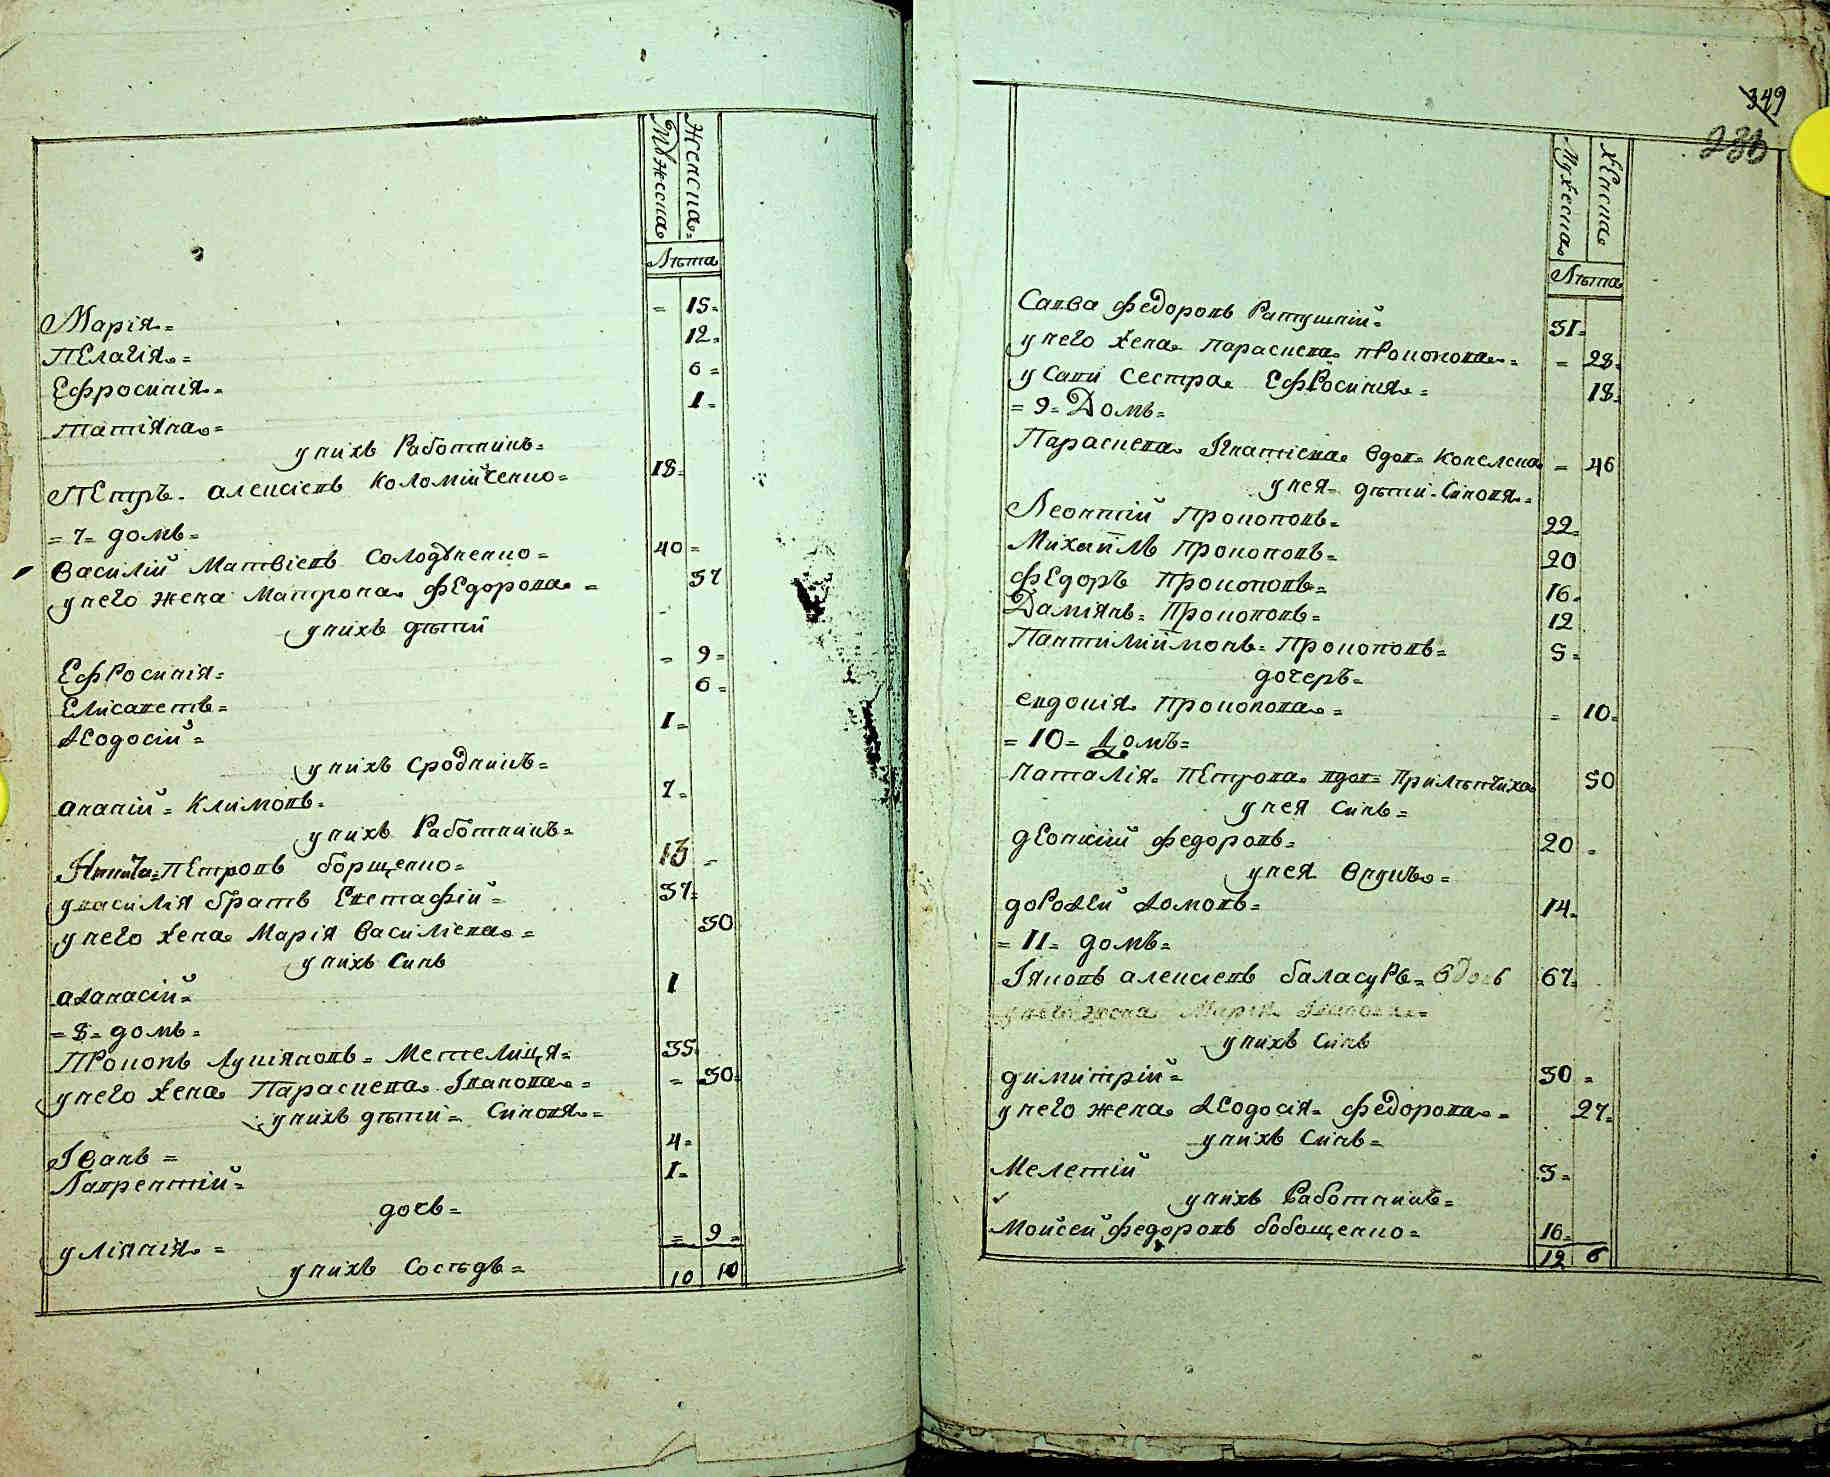 Мужеска
Женска
Лѣта
Марія = 15
Пелагія = 12
Ефросинія = 6
Татіяна = 1
у нихъ Работникъ =
Петръ алексіевъ Коломійченко = 18
= 7 = домъ =
Василій Матвіевъ Солодченко = 40
у него жена Матрона Федорова = 37
у нихъ дѣти
Ефросинія = 9
Елисаветъ = 6
Ѳеодосій = 1
у нихъ сродникъ =
ананій = Климовъ = 7
у нихъ Работникъ =
Петровъ борщенко = 13
у василія братъ Евстафій = 37
у него жена Марія Василіева = 30
у нихъ Синъ
аѳанасій = 1
= 8 = домъ =
Прокопъ Лукіяновъ = Метелиця = 35
у него жена Параскева Іванова = 30
у нихъ дѣти = Синовя =
Іванъ = 4
Лаврентій = 1
дочь =
уліянія = 9
у нихъ Сосѣдъ =
10 10
349
Мужеска
Женска
Лѣта
Савва Федоровъ Ратушній = 31
у него жена Параскева Прокопова = 28
у Сави Сестра Ефросинія = 18
= 9 = Домъ =
Параскева Ігнатіева вдов = Кобелева = 46
у нея дѣти Синовя =
Леонтій Прокоповъ = 22
Михаилъ Прокоповъ = 20
Федоръ Прокоповъ = 16
Даміянъ = Прокоповъ = 12
Пантилиймонъ = Прокоповъ = 5
дочеръ =
евдокія Прокопова = 10
= 10 = Домъ =
Наталія Петрова вдов = Прилѣпчиха 50
у нея Синъ =
деонисій Федоровъ = 20
у нея Внукъ =
дороѳей Ѳомовъ = 14
= 11 = домъ =
Іяковъ алексіевъ баласуръ = вдовъ 67
у него жена Марія
у нихъ Синъ
димитрій = 30
у него жена Ѳеодосія Федорова = 27
у нихъ Синъ =
Мелетій 3
у нихъ Работникъ =
Мойсей Федоровъ бобощенко = 16
12 6